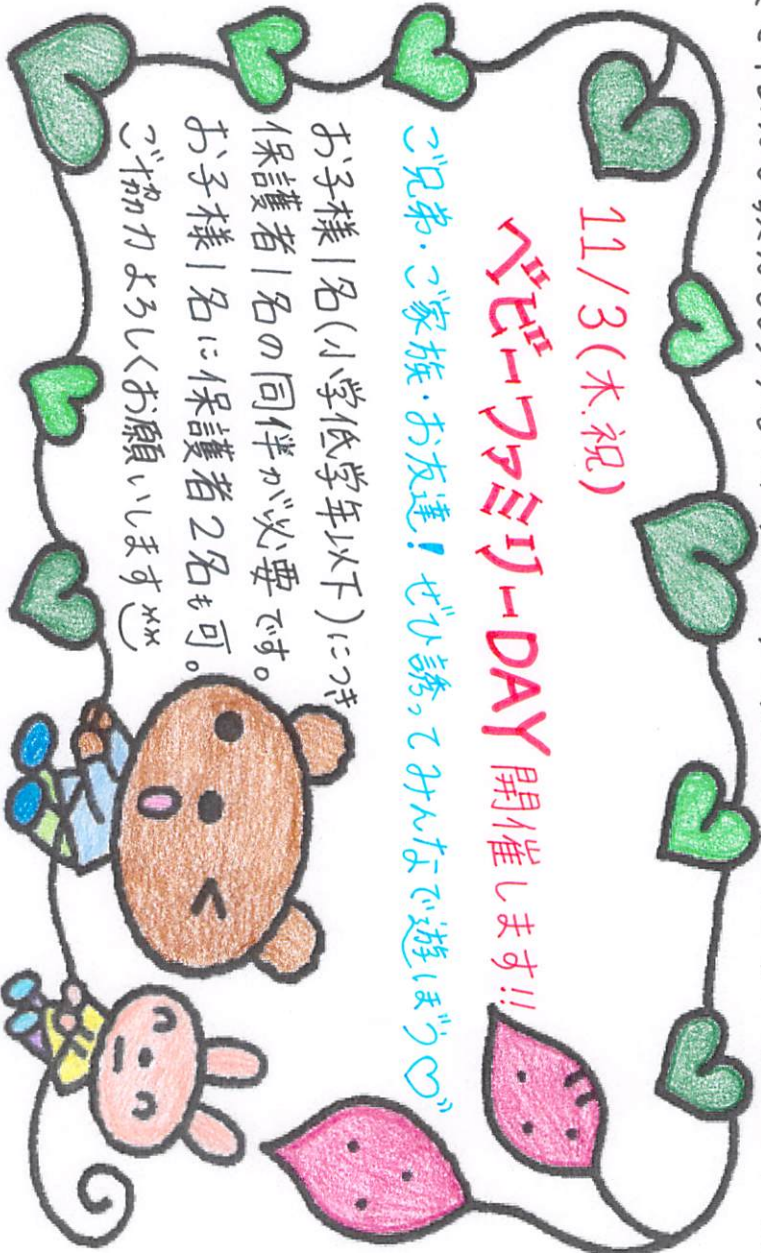 11/3(木.祝)
ベビーファミリーDAY 開催します!!
ご兄弟・ご家族・お友達！ぜひ誘ってみんなで遊ぼう♡
お子様1名(小学低学年以下)につき
保護者1名の同伴が必要です。
お子様1名に保護者2名も可。
ご協力よろしくお願いします